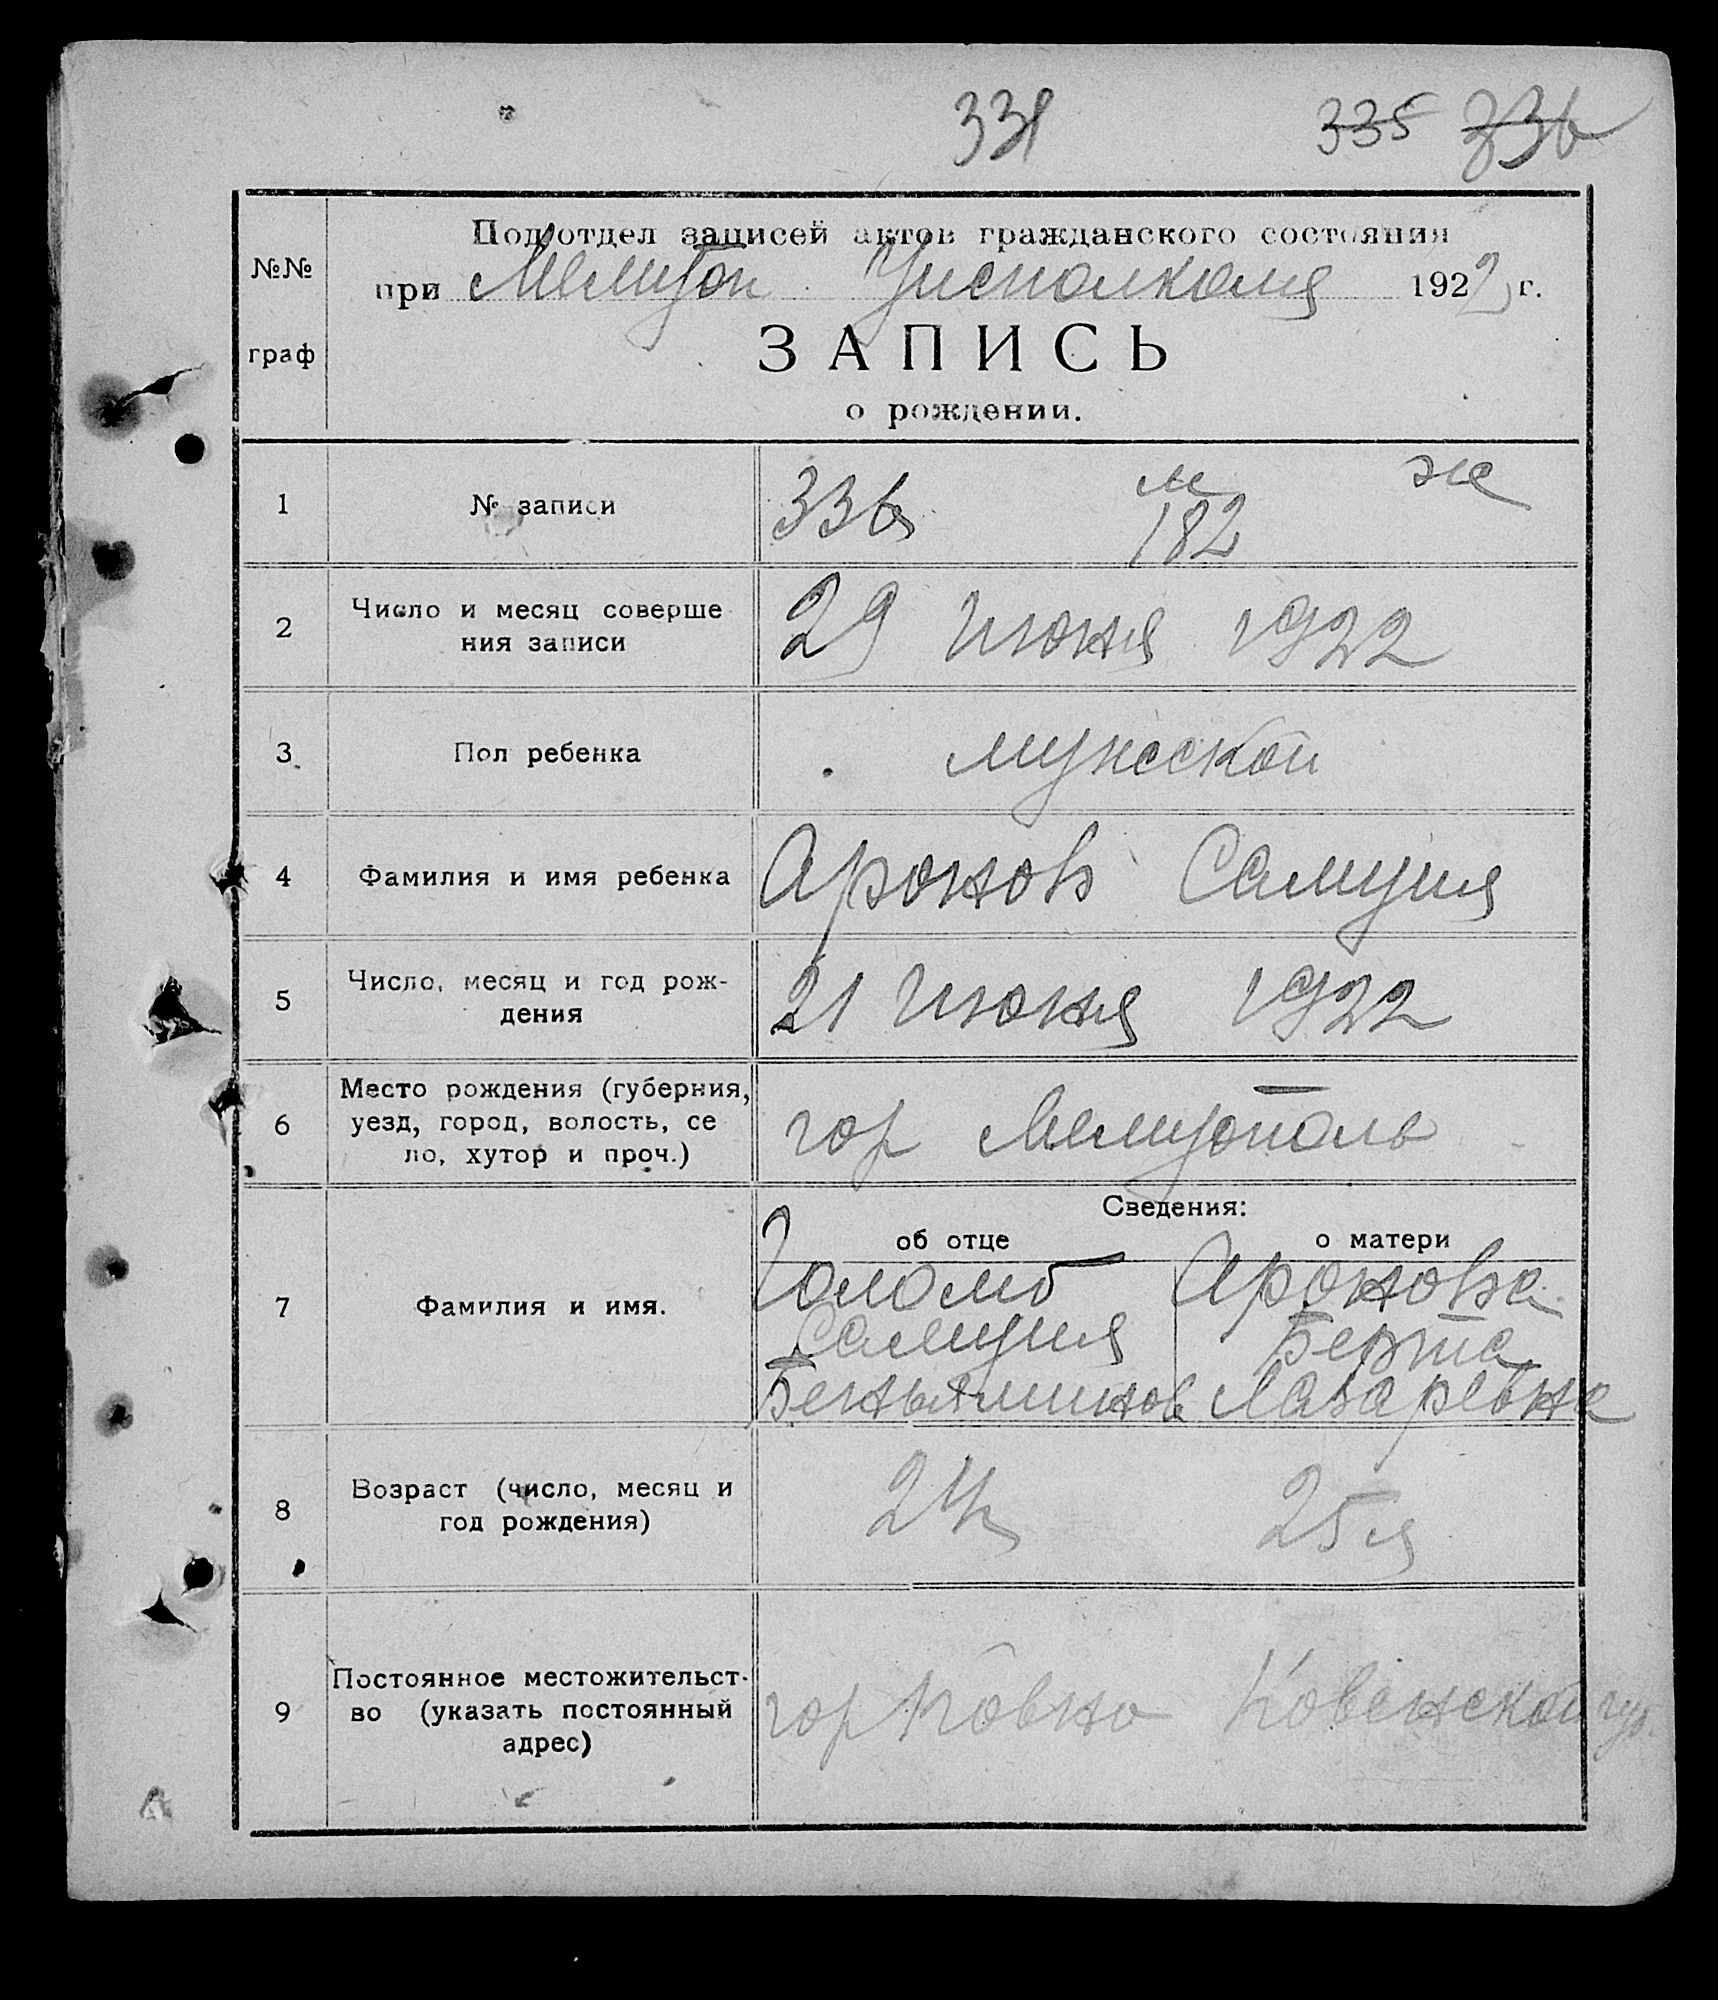 331 335 336
Подотдел записей актов гражданского состояния
при Мелитоп Уисполкома 1922 г.
№№
граф
ЗАПИСЬ
о рождении.
1 № записи 336 м ж
182
2 Число и месяц соверше
ния записи 29 июня 1922
3 Пол ребенка мужской
4 Фамилия и имя ребенка Аронов Самуил
5 Число, месяц и год рож-
дения 21 июня 1922
6 Место рождения (губерния,
уезд, город, волость, се
ло, хутор и проч.) гор Мелитополь
Сведения:
об отце о матери
7 Фамилия и имя. Голомб Аронова
Самуил Берта
Беньяминов Лазаревна
8 Возраст (число, месяц и
год рождения) 25 л
9 Постоянное местожительст-
во (указать постоянный
адрес) гор Ковно Ковенской губ.